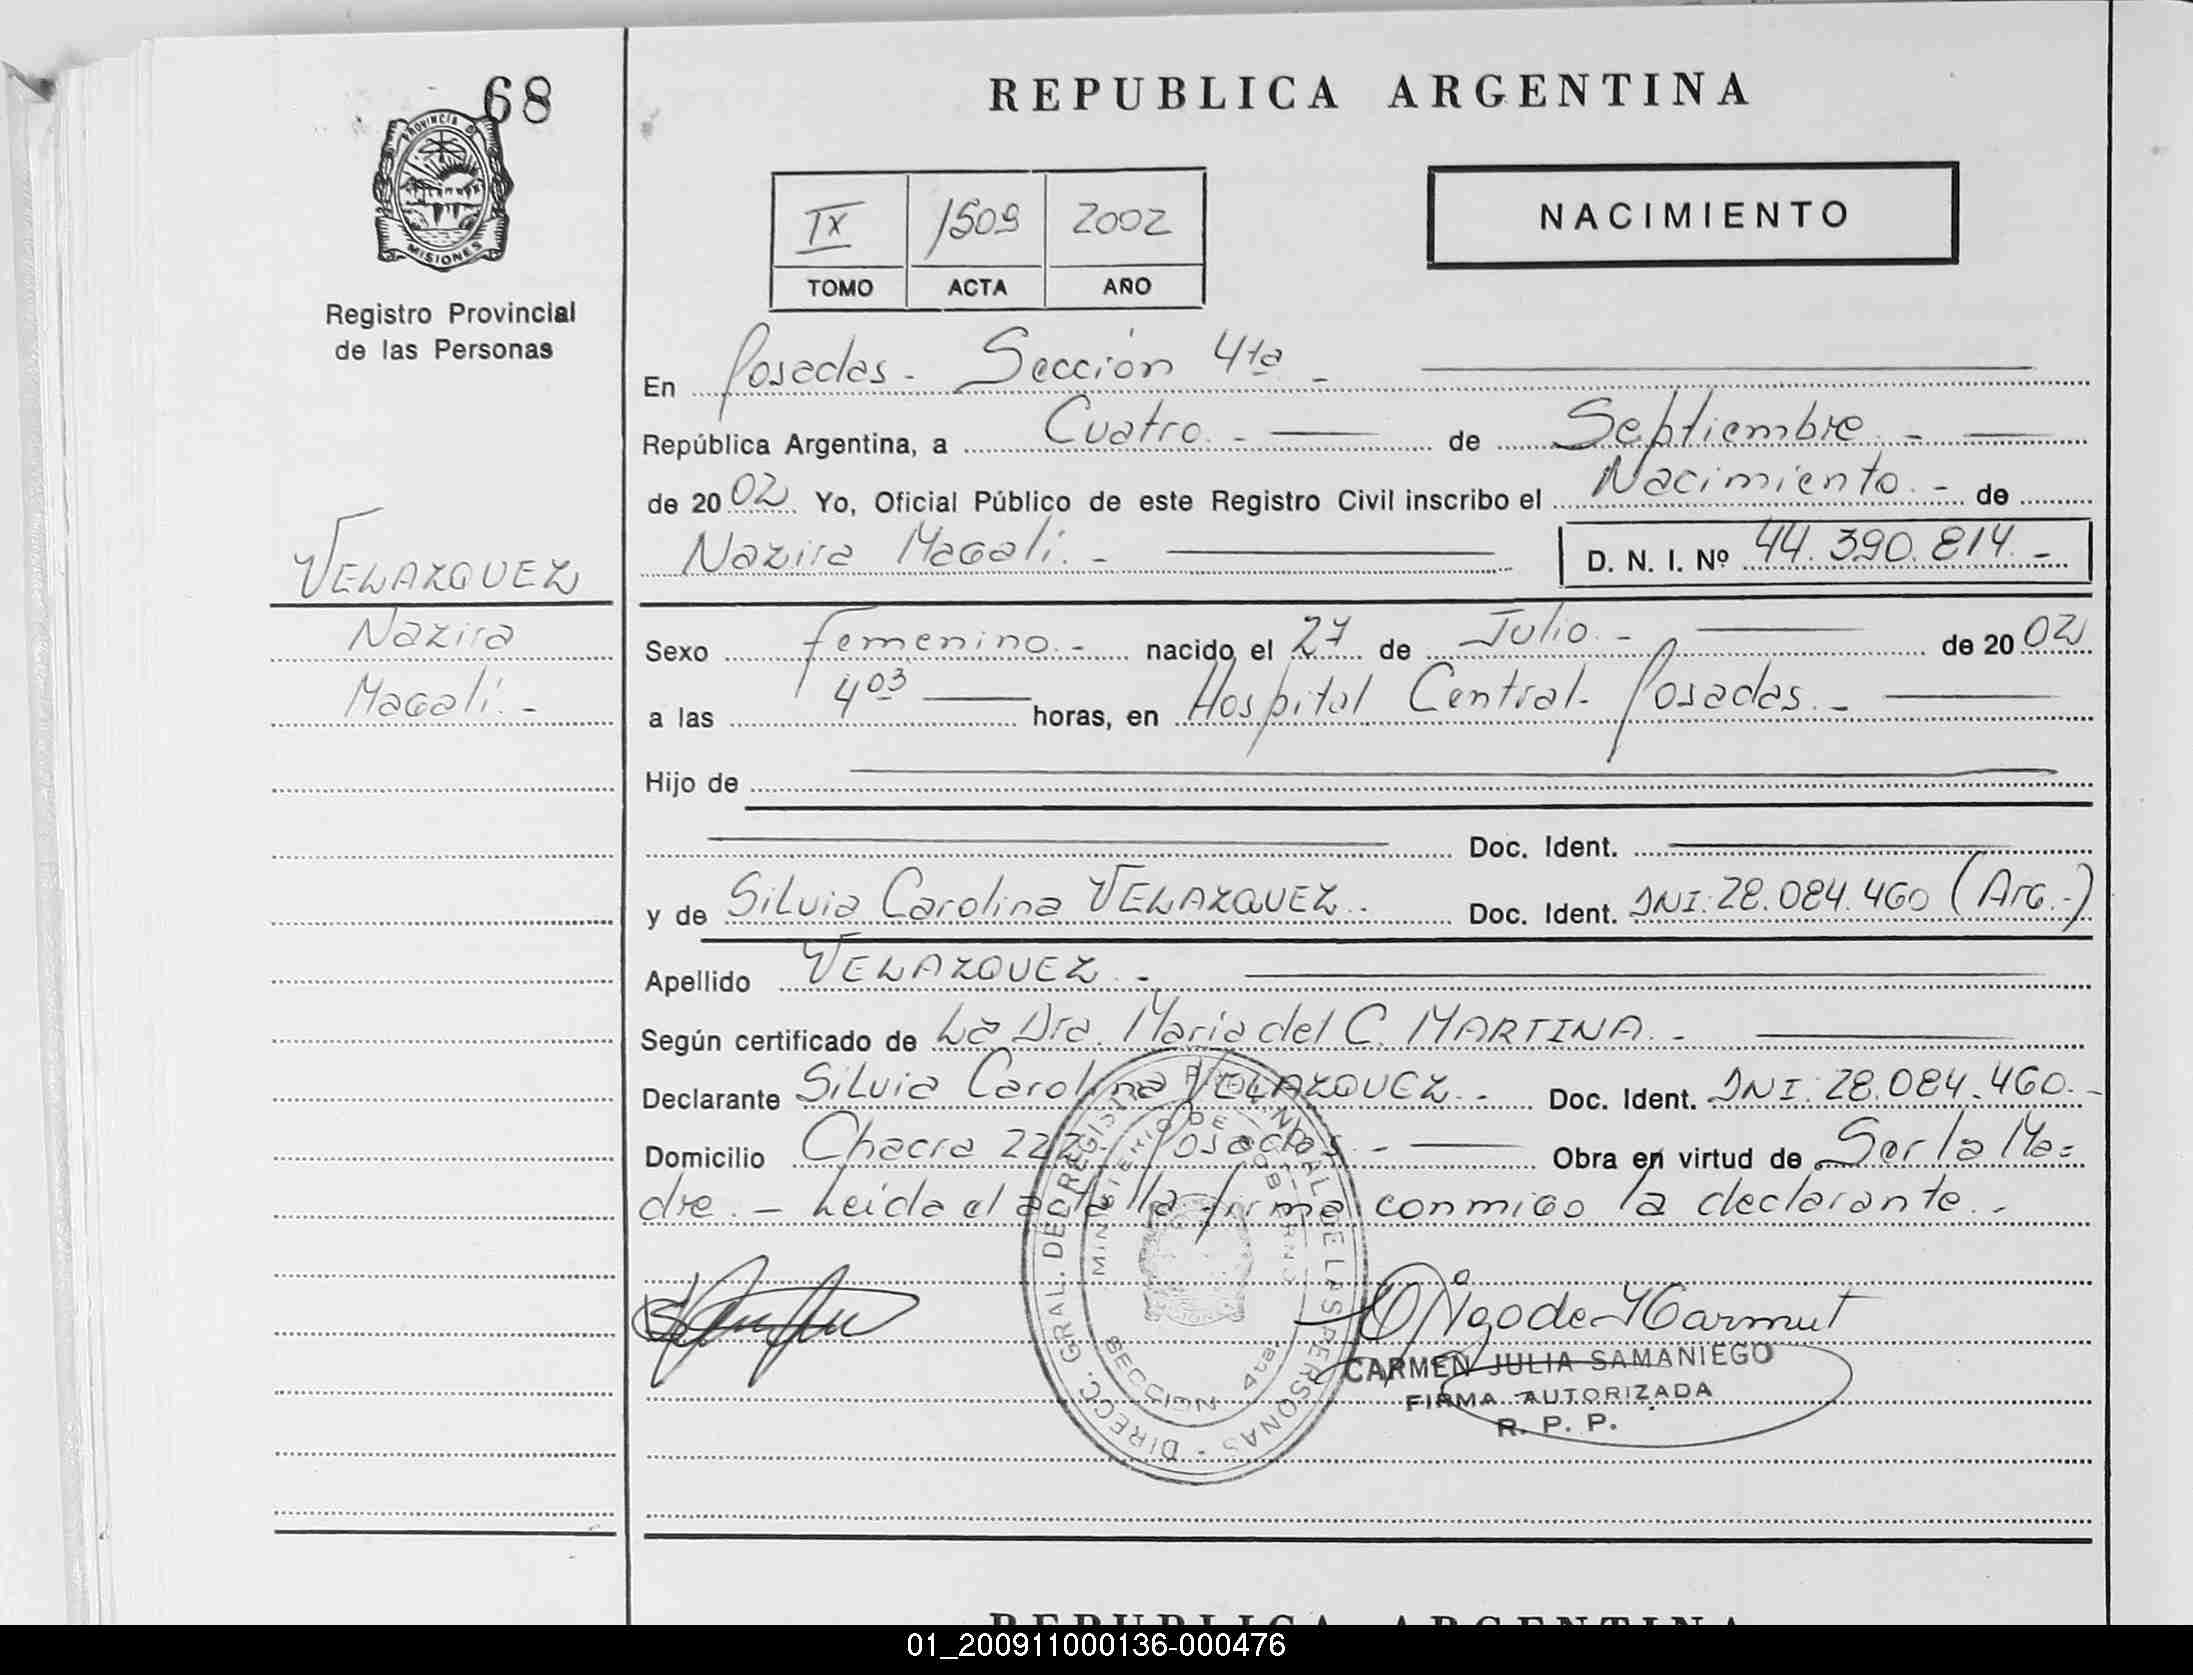 68
PROVINCIA DE
MISIONES
Registro Provincial
de las Personas
VELAZQUEZ
Nazira
Magalí.-
REPUBLICA ARGENTINA
IX 1509 2002
TOMO ACTA AÑO
NACIMIENTO
En Posadas.- Sección 4ta.-
República Argentina, a Cuatro.- de Septiembre.-
de 2002 Yo, Oficial Público de este Registro Civil inscribo el Nacimiento.- de
Nazira Magalí.- D. N. I. Nº 44.390.814.-
Sexo femenino.- nacido el 27 de Julio.- de 2002
a las 4 03 horas, en Hospital Central- Posadas.-
Hijo de
Doc. Ident.
y de Silvia Carolina VELAZQUEZ.- Doc. Ident. DNI: 28.084.460 (Arg.-)
Apellido VELAZQUEZ.-
Según certificado de La Dra. María del C. MARTINA.-
Declarante Silvia Carolina VELAZQUEZ.- Doc. Ident. DNI: 28.084.460.-
Domicilio Chacra 222- Posadas.- Obra en virtud de Ser la Ma=
dre.- Leída el acta lla firma conmigo la declarante.-
DIRECC. GRAL. DE REGISTRO PROVINCIAL DE LAS PERSONAS -
MINISTERIO DE GOBIERNO
SECCION 4ta.
CARMEN JULIA SAMANIEGO
FIRMA AUTORIZADA
R. P. P.
REPUBLICA ARGENTINA
01_200911000136-000476